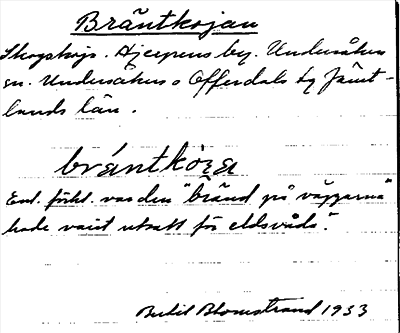 Bräntkojan
Skogskoja. Hjerpens by. Undersåkers
sn. Undersåkers o Offerdals tg Jämt-
lands län.
bräntkòja
Enl. förkl. var den "bränd på väggarna"
hade varit utsatt för eldsvåda".
Bertil Blomstrand 1933